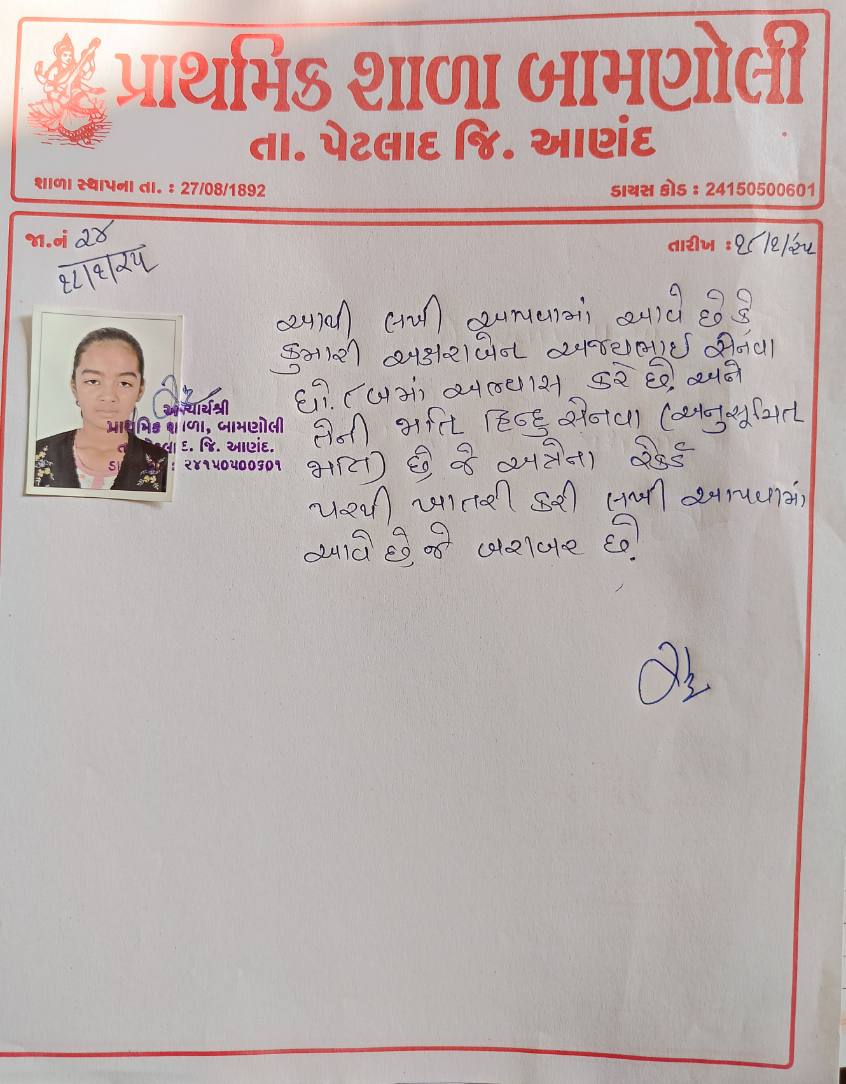 પ્રાથમિક શાળા બામણોલી
તા. પેટલાદ જિ. આણંદ
શાળા સ્થાપના તા. : 27/08/1892
ડાયસ કોડ : 24150500601
જા.નં ૨૪
૧૮/૧/૨૫
તારીખ : ૧૮/૧/૨૫
આથી લખી આપવામાં આવે છે કે
કુમારી અક્ષરાબેન અજયભાઈ સેનવા
ધો. ૮બમાં અભ્યાસ કરે છે. અને
તેની જાતિ હિન્દુ સેનવા (અનુસૂચિત
જાતિ) છે જે અત્રેના રેકર્ડ
પરથી ખાતરી કરી લખી આપવામાં
આવે છે, જે બરાબર છે.
આચાર્યશ્રી
પ્રાથમિક શાળા, બામણોલી
તા. પેટલાદ. જિ. આણંદ.
: ૨૪૧૫૦૫૦૦૬૦૧